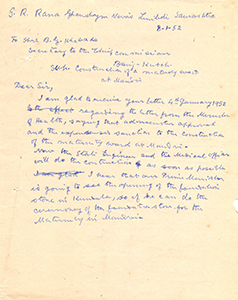 G. R. Rana Ghanshyam Nivas Limbdi Saurastra
8-1-52
To Shri B. G. Khebade
Secretary to the Chief Commissioner
Bhuj - Kutch
Sub: Construction of a maternity ward
at Mandvi
Dear Sir,
I am glad to receive your letter 4th January 1952
to the effect regarding the letter from the Ministry
of Health, saying that administrative approval
and the expenditure sanction to the construction
of the maternity ward at Mandvi.
Now the State Engineer and the Medical Officer
will do the construction as soon as possible
I am glad I hear that our Prime Minister
is going to see the opening of the foundation
stone in Kandla, so if he can do the
ceremony of the foundation stone for the
Maternity in Mandvi.